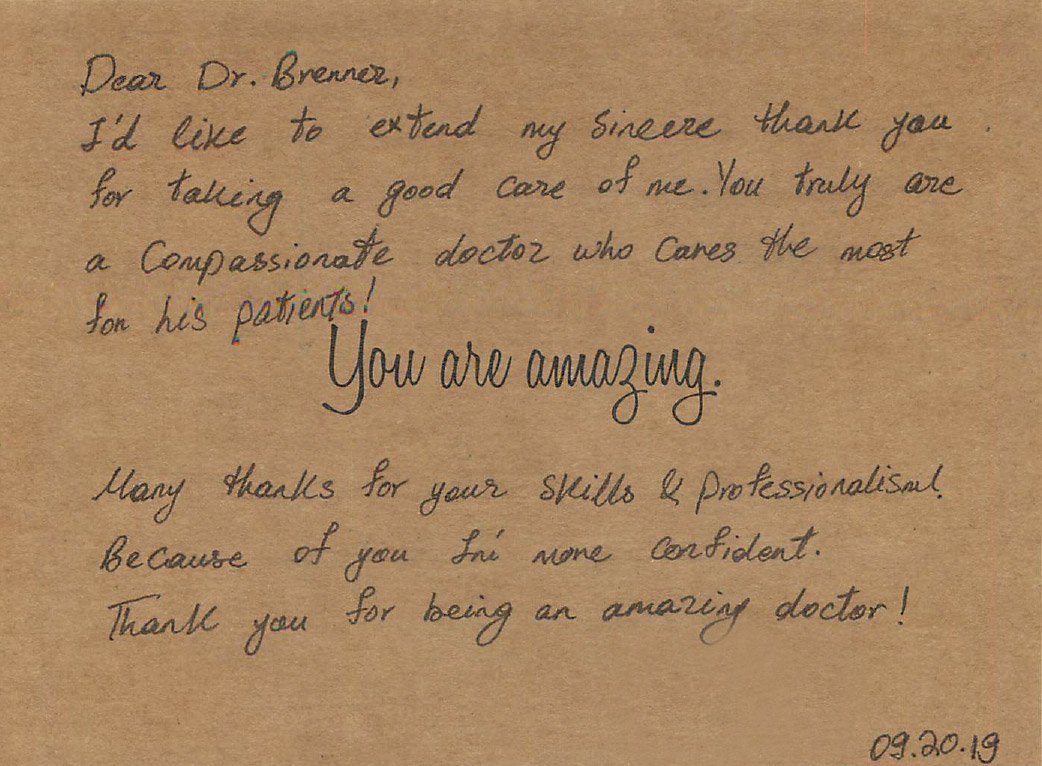 Dear Dr. Brenner,
I'd like to extend my sincere thank you
for taking a good care of me. You truly are
a Compassionate doctor who cares the most
for his patients!
You are amazing.
Many thanks for your skills & professionalism!
Because of you I'm more confident.
Thank you for being an amazing doctor!
09.20.19